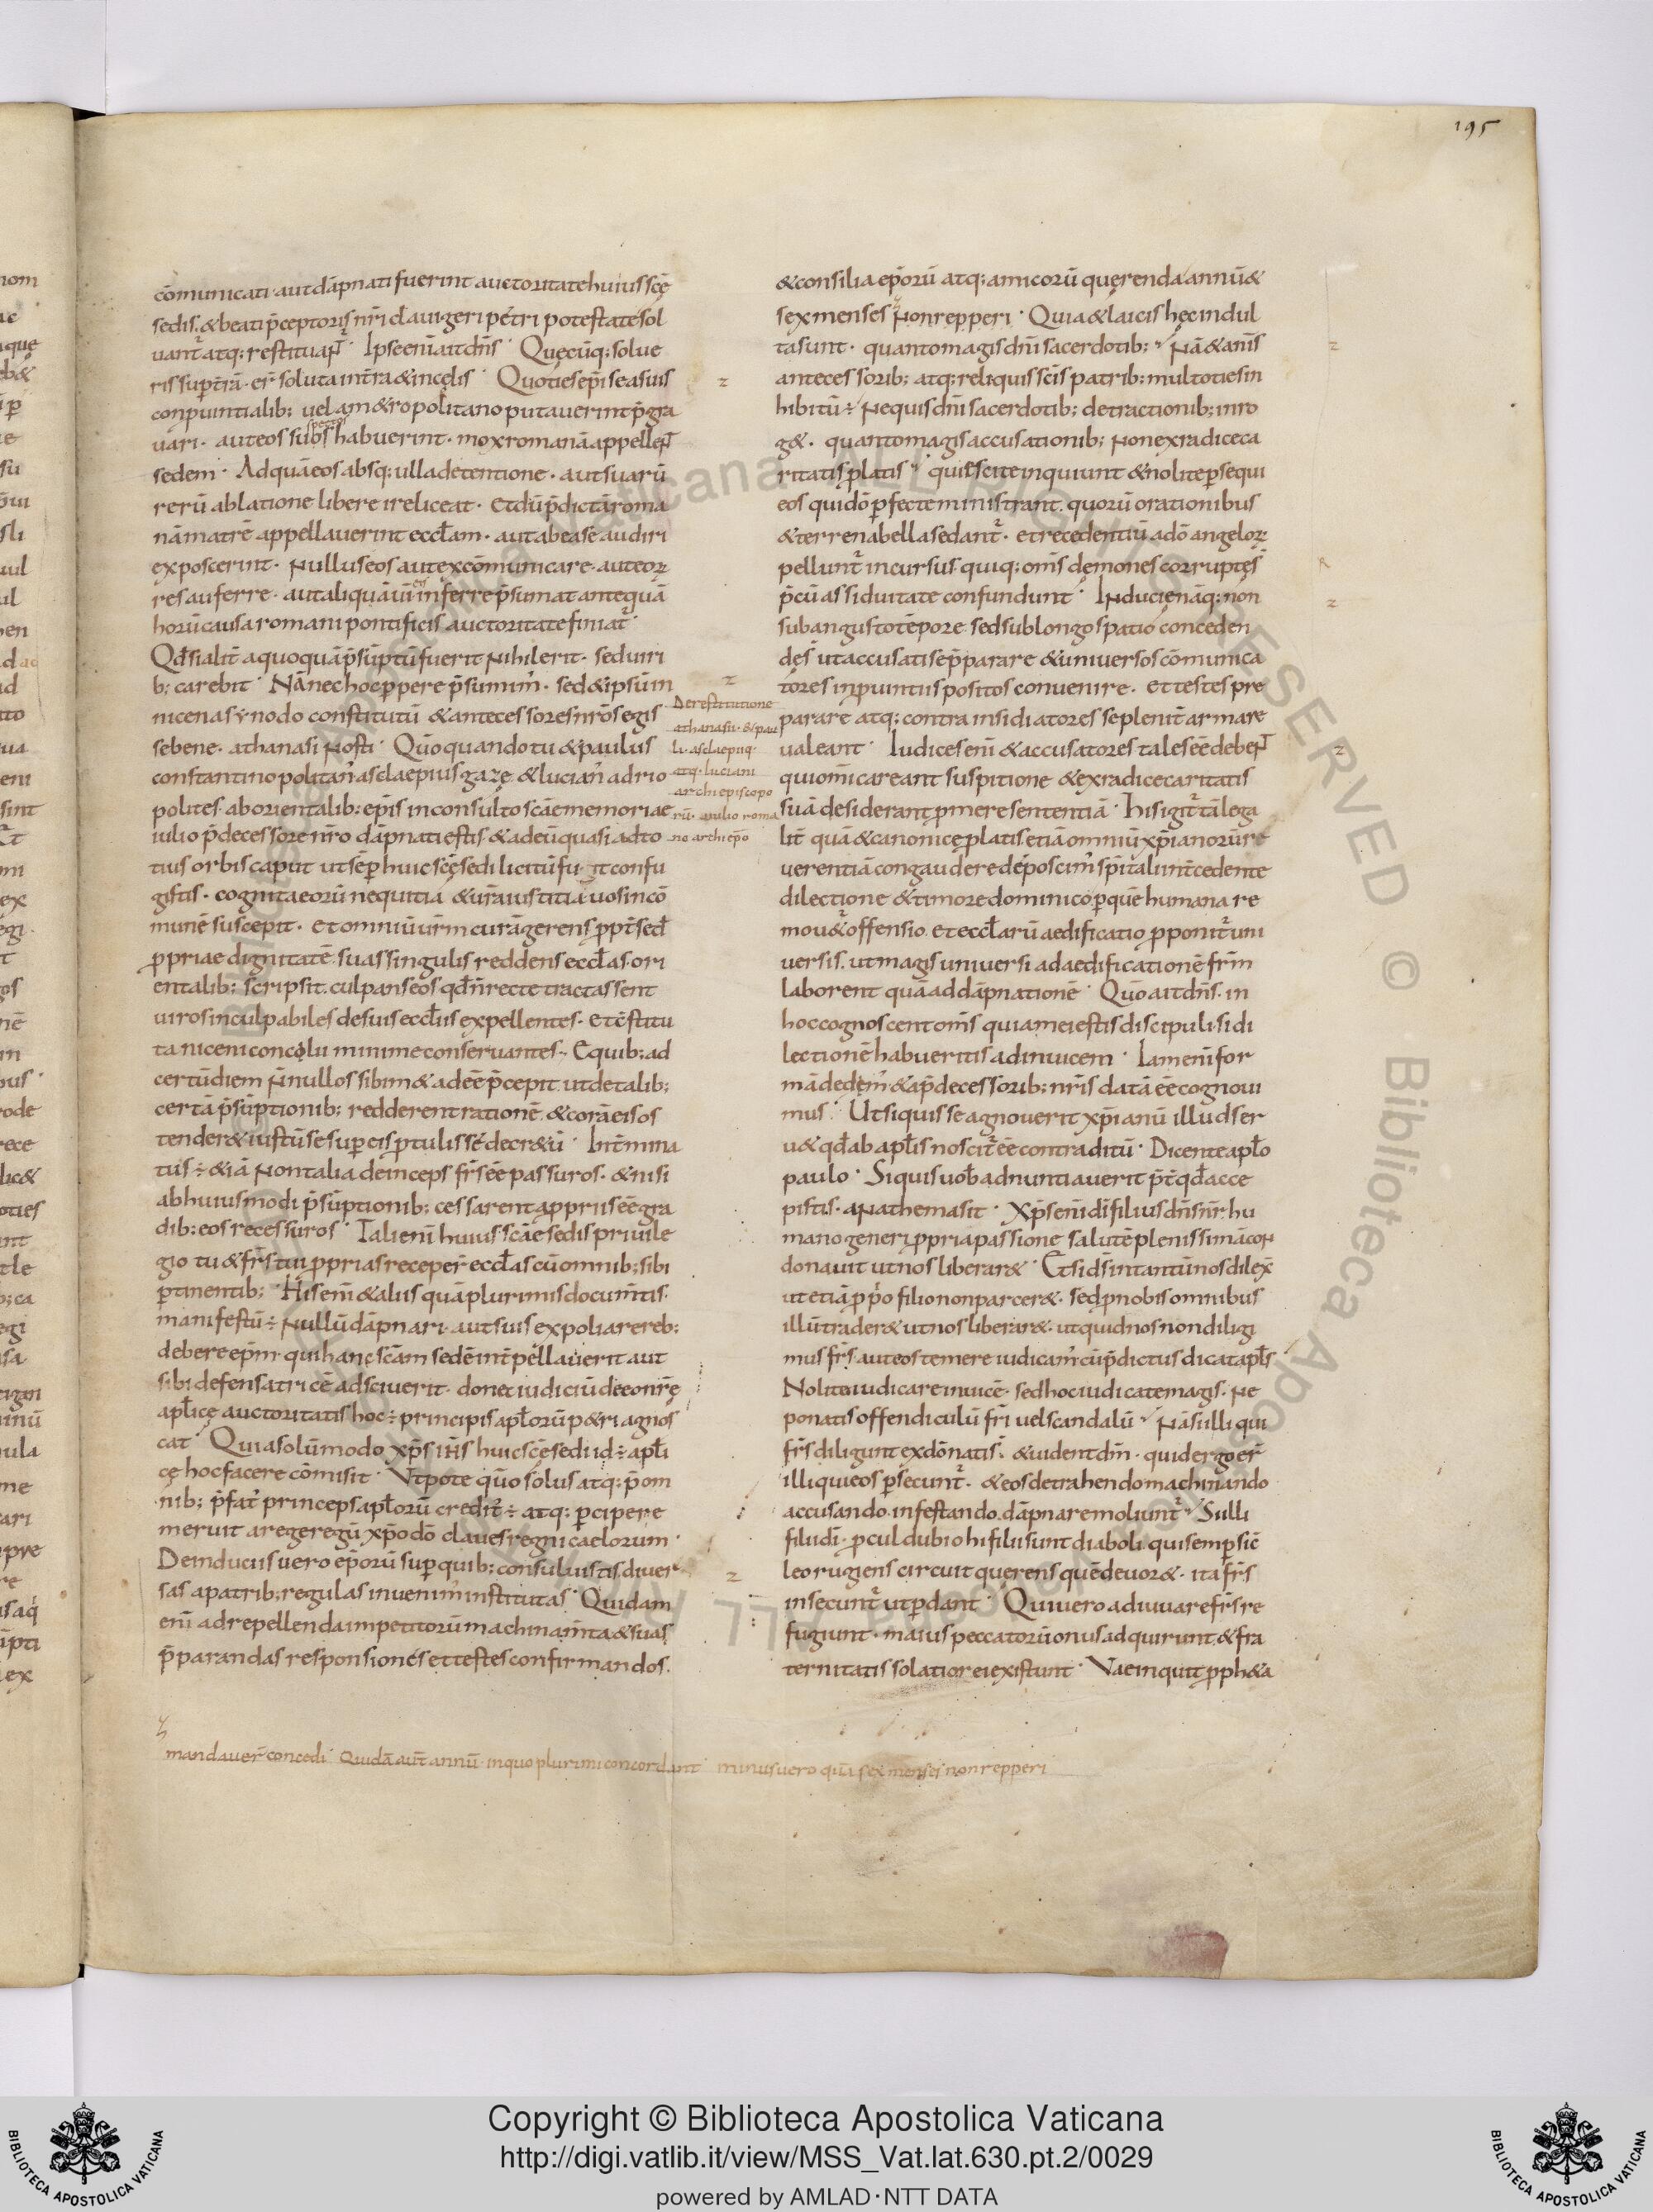 195
cōmunicati· aut dāpnati fuerint auctoritate huius scę
sedis. & beati p̄ceptoris nr̄i clauigeri petri potestate sol
uant᷑ atq; restituant᷑· Ipse enī ait dn̄s· Quęcūq; solue
ris sup t̄rā· er̄ soluta int̄ra & in cęlis· Quotiens ep̄i se a suis
conpuintialib; uel a m&ropolitano putauerint p̄gra
uari· aut eos suspectos habuerint· mox romanā appellent᷑
sedem· Ad quā eos absq; ulla detentione· aut suarū
rerū ablatione libere ire liceat· Et dū p̄dictā roma
nā matrē appellauerint eccl̄am· aut ab ea se audiri
exposcerint· Nullus eos aut excōmunicare· aut eoꝝ
res auferre· aut aliquā uī eis inferre p̄sumat antequā
horū causa romani pontificis auctoritate finiat᷑·
Qd̄ si alit̄ a quoquā p̄sūptū fuerit Nihil erit· sed uiri
b; carebit· Nā nec hoc ꝓpere p̄sumim̄· sed & ipsū in
nicena synodo constitutū & antecessores nr̄os egis
se bene· athanasi Nosti· Quō quando tu & paulus
constantinopolitan̄ asclaepius gazę & lucian̄ adrio
polites· ab orientalib; ep̄is inconsulto scāe memoriae
iulio p̄decessore nr̄o dāpnati estis· & ad eū quasi ad to
tius orbis caput ut sēp huic scę sedi licitū fuit confu
gistis· cognita eorū nequitia & ur̄a iustitia uos in cō
munē suscepit· Et omniū ur̄m curā gerens ꝓpt̄ sed̄
ꝓpriae dignitatē suas singulis reddens eccl̄as· ori
entalib; scripsit· culpans eos qd̄ n̄ recte tractassent
uiros inculpabiles de suis eccl̄iis expellentes· et c̄stitu
ta niceni concilii minime conseruantes· E quib; ad
certū diem n̄nullos sibim& adeē p̄cepit ut de talib;
certā p̄sūptionib; redderent rationē & corā eis os
tender& iustū se sup eis ꝓtulisse decr&ū· Int̄mina
tus ÷ & iā Non talia deinceps fr̄s eē passuros· & nisi
ab huiusmodi p̄sūptionib; cessarent a ꝓpriis eē gra
dib; eos recessuros· Tali enī huius scāe sedis priuile
gio tu & fr̄s tui ꝓprias receper̄ eccl̄as cū omnib; sibi
ptinentib;· His enī & aliis quāplurimis documt̄is
manifestū ÷ Nullū dāpnari· aut suis expoliare reb;
debere ep̄m· qui hanc scām sedē int̄pellauerit aut
sibi defensatricē adsciuerit· donec iudiciū de eo nr̄ę
apl̄icę auctoritatis hoc ÷ principis apl̄orū p&ri agnos
cat· Quia solūmodo xp̄s ih̄s huic scę sedi id ÷ apl̄i
cę hoc facere cōmisit· Vtpote quō solus atq; p̄ om
nib; p̄fat̄ princeps apl̄orū credit᷑ ÷ atq; pcipere
meruit a rege regū xp̄o dō claues regni caelorum·
De induciis uero ep̄orū sup quib; consuluistis diuer
sas a patrib; regulas inuenim̄ institutas· Quidam
enī ad repellenda impetitorū machinam̄ta & suas
p̄parandas responsiones et testes confirmandos·
De restitutione
athanasii· & pau
li· asclaepiiq·
atq· luciani
archiepiscopo
rū· a iulio roma
no archiep̄o
& consilia ep̄orū atq; amicorū quęrenda annū &
sex menses Non repperi· Quia & laicis hęc indul
ta sunt· quanto magis dn̄i sacerdotib; Nā & a n̄is
antecessorib; atq; reliquis scīs patrib; multotiens in
hibitū ÷ Ne quis dn̄i sacerdotib; detractionib; inro
g&· quanto magis accusationib; Non ex radice ca
ritatis ꝓlatis quiescite inquiunt & nolite psequi
eos qui dō pfecte ministrant quorū orationibus
& terrena bella sedant᷑· et recedentiū a dō angeloꝝ
pellunt᷑ incursus quiq; om̄s dęmones corruptęs
p̄cū assiduitate confundunt· Inducienāq; non
sub angusto tēpore sed sub longo spatio conceden
dęs ut accusati se p̄parare & uniuersos cōmunica
tores in ꝓuintiis positos conuenire· et testes pre
parare atq; contra insidiatores se plenit̄ armare
ualeant· Iudices enī & accusatores tales eē debent᷑
qui om̄i careant suspitione & ex radice caritatis
suā desiderant ꝓmere sententiā· His igit᷑ tā lega
lit̄ quā & canonicę ꝓlatis etiā omniū xp̄ianorū re
uerentiā congaudere deposcim̄ spīitali int̄cedente
dilectione & timore dominico· p quē humana re
mouet᷑ offensio et eccl̄arū aedificatio ꝓponit᷑ uni
uersis· ut magis uniuersi ad aedificationē fr̄m
laborent quā ad dāpnationē· Quō ait dn̄s· in
hoc cognoscent om̄s quia mei estis discipuli· si di
lectionē habueritis ad inuicem· Iam enī for
mā dedęm̄ & a p̄decessorib; nr̄is datā eē cognoui
mus· Ut si quis se agnouerit xp̄ianū illud ser
u& qd̄ ab apl̄is noscit᷑ eē contraditū· Dicente apl̄o
paulo· Si quis uob̄ adnuntiauerit p̄t̄ qd̄ acce
pistis· anathema sit· Xp̄s enī dī filius dn̄s nr̄ hu
mano generi ꝓpria passione salutē plenissimā con
donauit ut nos liberar&· Et si ds̄ in tantū nos dilex̄
ut etiā ꝓp̄o filio non parcer&· sed ꝓ nobis omnibus
illū trader& ut nos liberar&· ut quid nos non diligi
mus fr̄s· aut eos temere iudicam̄ cū p̄dictus dicat apl̄s
Nolite iudicare inuicē· sed hoc iudicate magis· Ne
ponatis offendiculū fr̄i uel scandalū Nā si illi qui
fr̄s diligunt ex dō nati s̄· & uident dm̄· quid ergo er̄
illi qui eos psecunt᷑· & eos detrahendo machinando
accusando infestando dāpnare moliunt᷑ Si illi
filii dī· pcul dubio hi filii sunt diaboli qui semp sic̄
leo rugiens circuit querens quē deuor&· ita fr̄s
insecunt᷑ ut pdant· Qui uero adiuuare fr̄s re
fugiunt· maius peccatorū onus adquirunt & fra
ternitatis solatio rei existunt· Vae inquit ꝓph&a
mandauer̄ concedi· Quidā aūt annū· in quo plurimi concordant minus uero quā sex menses non repperi
Copyright © Biblioteca Apostolica Vaticana
http://digi.vatlib.it/view/MSS_Vat.lat.630.pt.2/0029
powered by AMLAD·NTT DATA